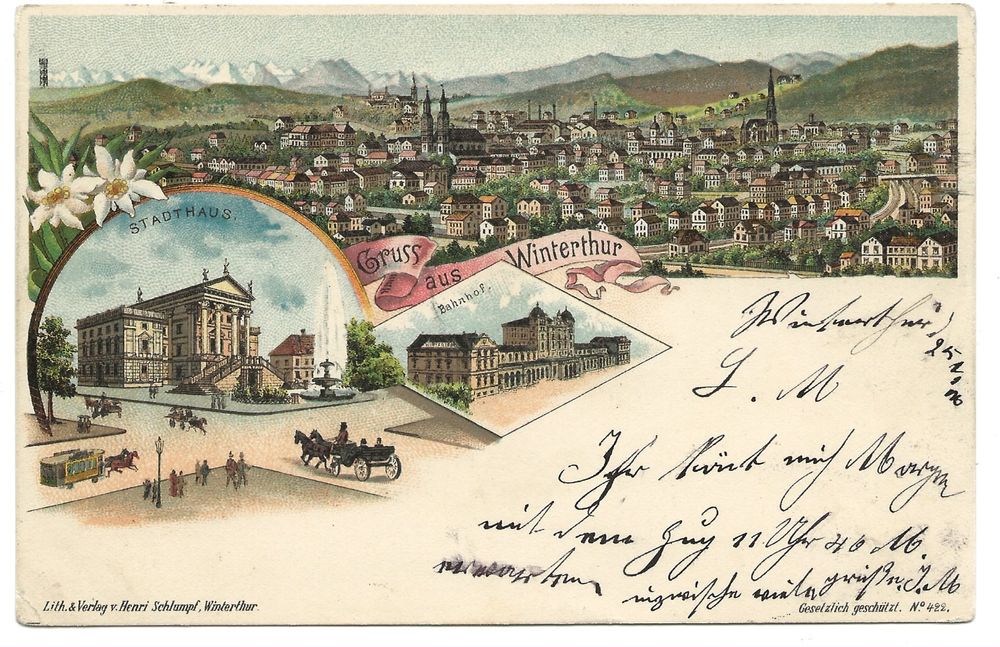 STADTHAUS.
Gruss
aus
Winterthur
Bahnhof.
Winterthur
25
L. M
Ihr könt mich Morgen
mit dem Zug 11 Uhr 46 M.
erwarten
inzwische viele grüße. J. M
Lith. & Verlag v. Henri Schlumpf, Winterthur.
Gesetzlich geschützt. Nº 422.